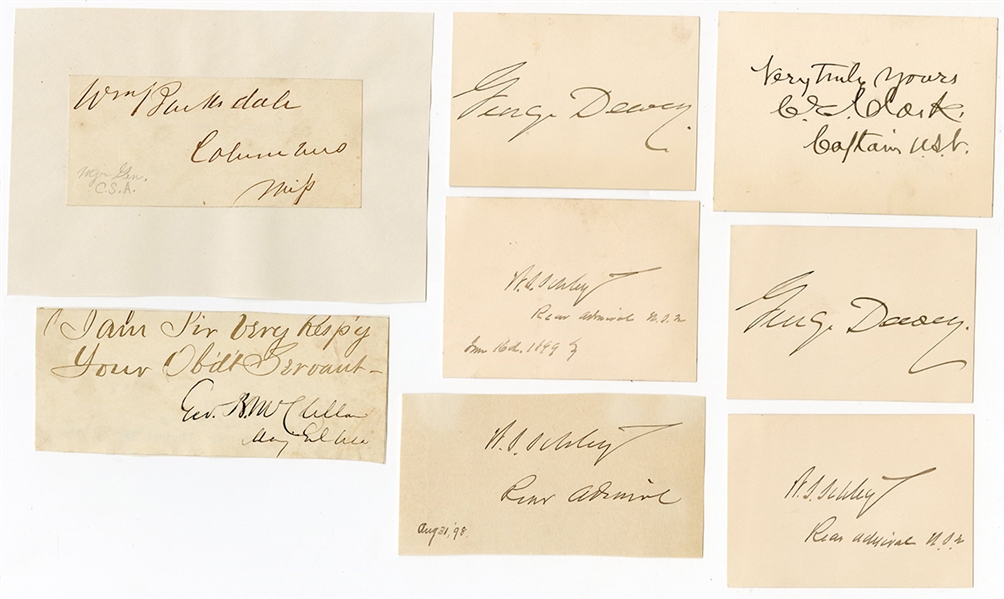 Wm Barksdale
Columbus
Mip
Maj. Gen.
C.S.A.
I am Sir Very Resp'y
Your Obdt Servant
Geo. B. McClellan
Maj Genl USA
George Dewey.
W. S. Schley
Rear Admiral U.S.N
16th. 1899
W. S. Schley
Rear Admiral
Aug 31, '98.
Very truly yours
C. E. Clark.
Captain U.S.N.
George Dewey.
W. S. Schley
Rear Admiral U.S.N